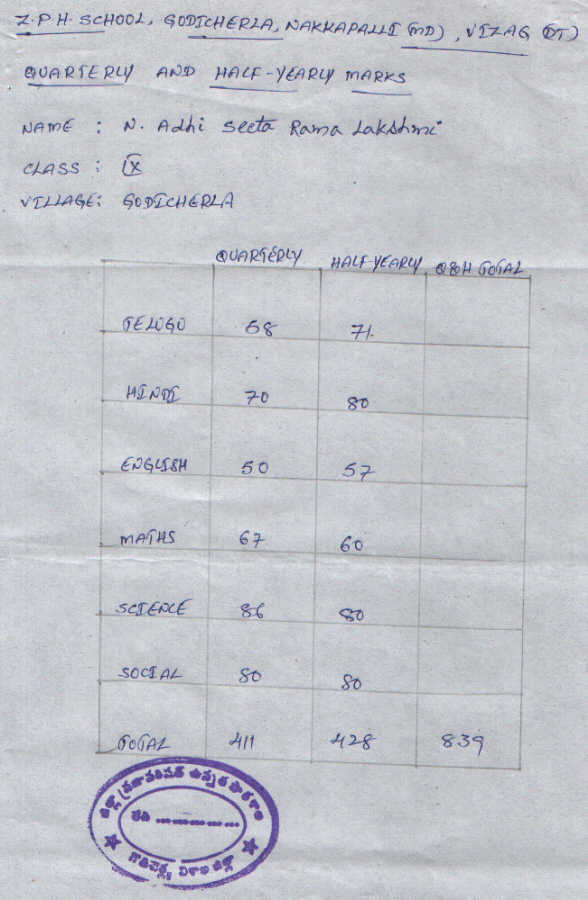 Z.P.H. SCHOOL, GODICHERLA, NAKKAPALLI (MD), VIZAG (DT)
QUARTERLY AND HALF-YEARLY MARKS
NAME : N. Adhi Seeta Rama Lakshmi
CLASS : IX
VILLAGE: GODICHERLA
QUARTERLY HALF-YEARLY Q&H TOTAL
TELUGU 58 71.
HINDI 70 80
ENGLISH 50 57
MATHS 67 60
SCIENCE 86 80
SOCIAL 80 80
TOTAL 411 428 839
జిల్లా ప్రజాపరిషత్ ఉన్నత పాఠశాల
తేది
గొడిచెర్ల, విశాఖ జిల్లా